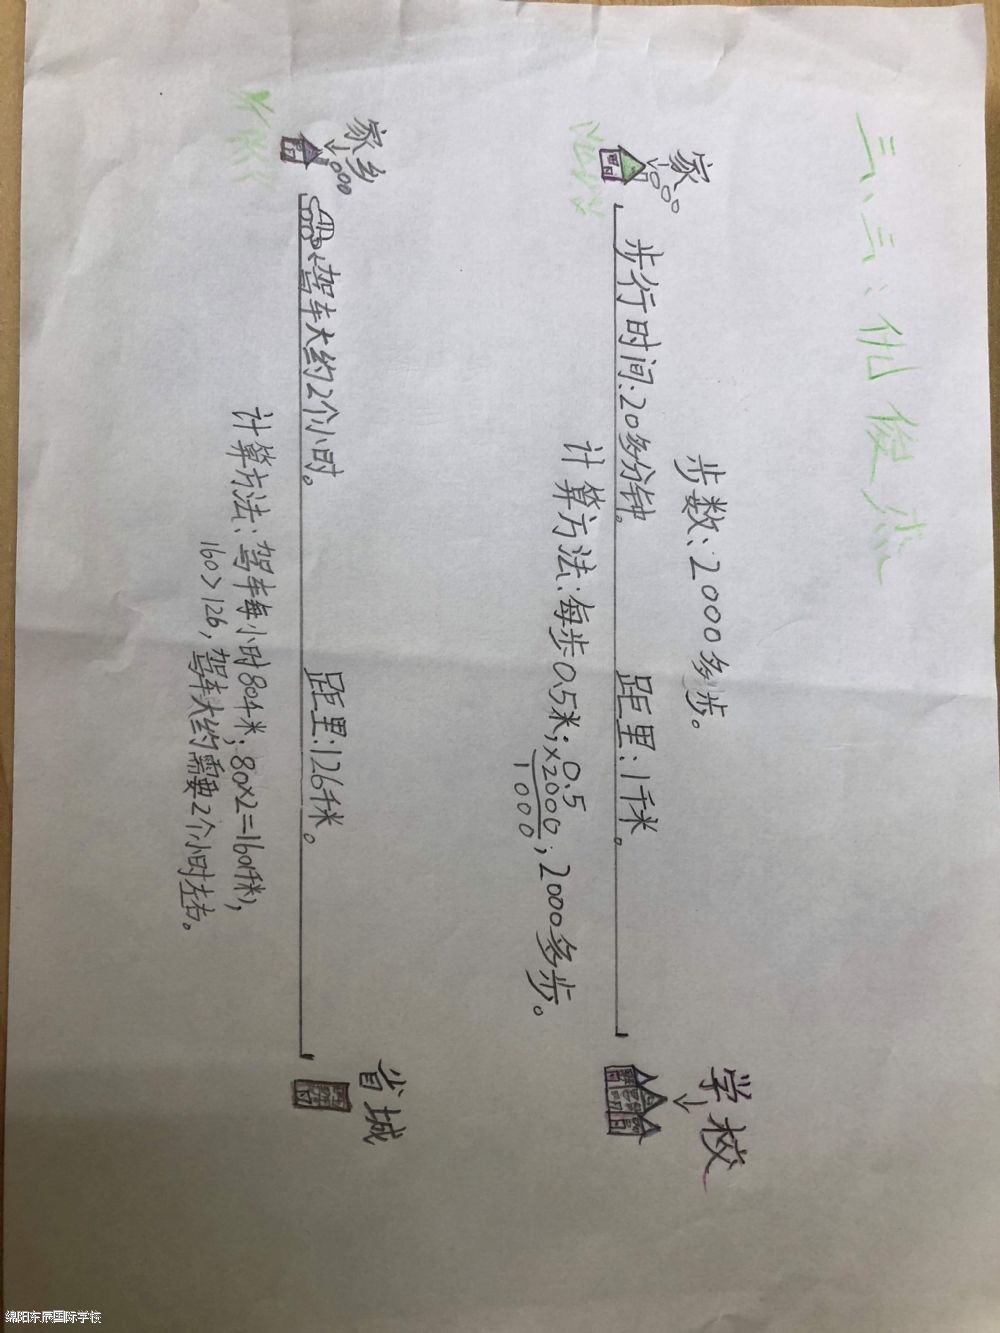 三、三：仳俊杰
步数：2000多步。
家
学校
步行时间：20多分钟。
距里：1千米。
计算方法：每步0.5米；
0.5
×2000
1000
；2000多步。
家乡
省城
驾车大约2个小时。
距里：126千米。
计算方法：驾车每小时80千米；80×2=160(千米)，
160＞126，驾车大约需要2个小时左右。
绵阳东辰国际学校